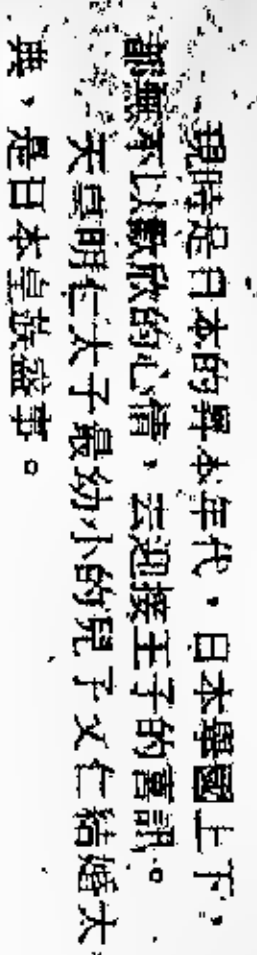 現時是日本的昇平年代，日本舉國上下，
都無不以歡欣的心情，去迎接王子的喜訊。
天皇明仁太子最幼小的兒子文仁結婚大
典，是日本皇族盛事。